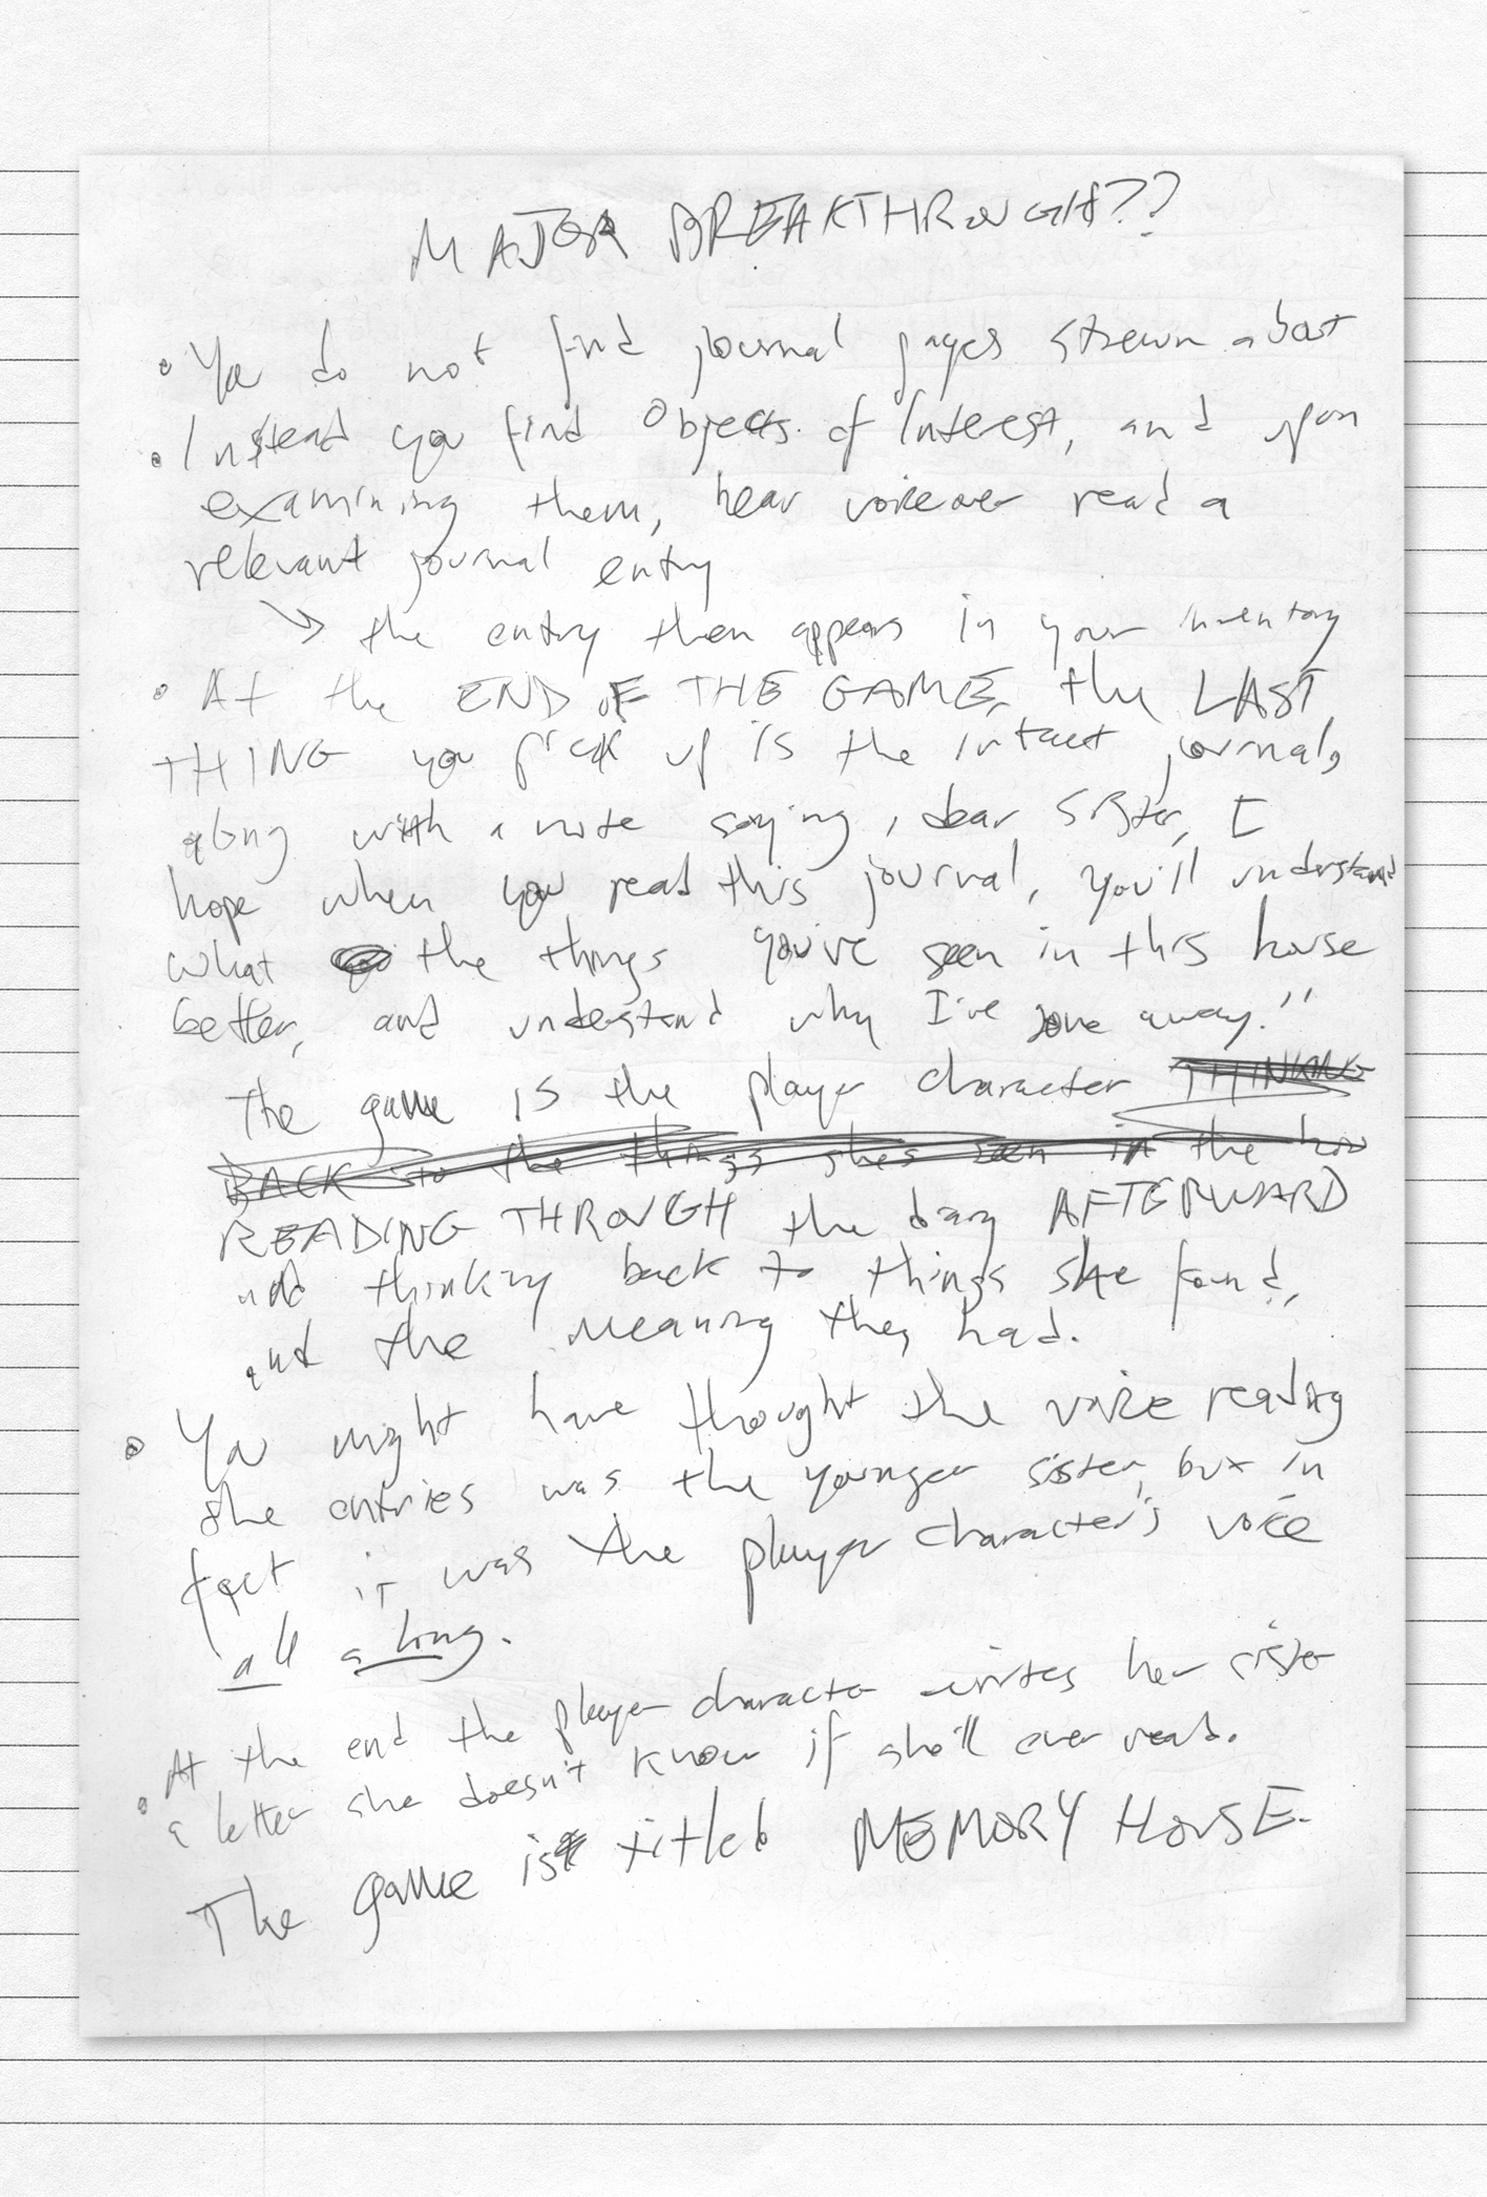 MAJOR BREAKTHROUGH??
• You do not find journal pages strewn about
• Instead you find Objects of Interest, and upon
examining them, hear voiceover read a
relevant journal entry
↘ the entry then appears in your inventory
• At the END OF THE GAME, the LAST
THING you pick up is the intact journal,
along with a note saying, dear Sister, I
hope when you read this journal, you'll understand
what the things you've seen in this house
better, and understand why I've gone away."
The game is the player character THINKING
BACK to the things she's seen in the hou
READING THROUGH the diary AFTERWARD
and thinking back to things she found,
and the meaning they had.
• You might have thought the voice reading
the entries was the younger sister, but in
fact it was the player character's voice
all along.
• At the end the player character writes her sister
a letter she doesn't know if she'll ever read.
The game is titled MEMORY HOUSE.